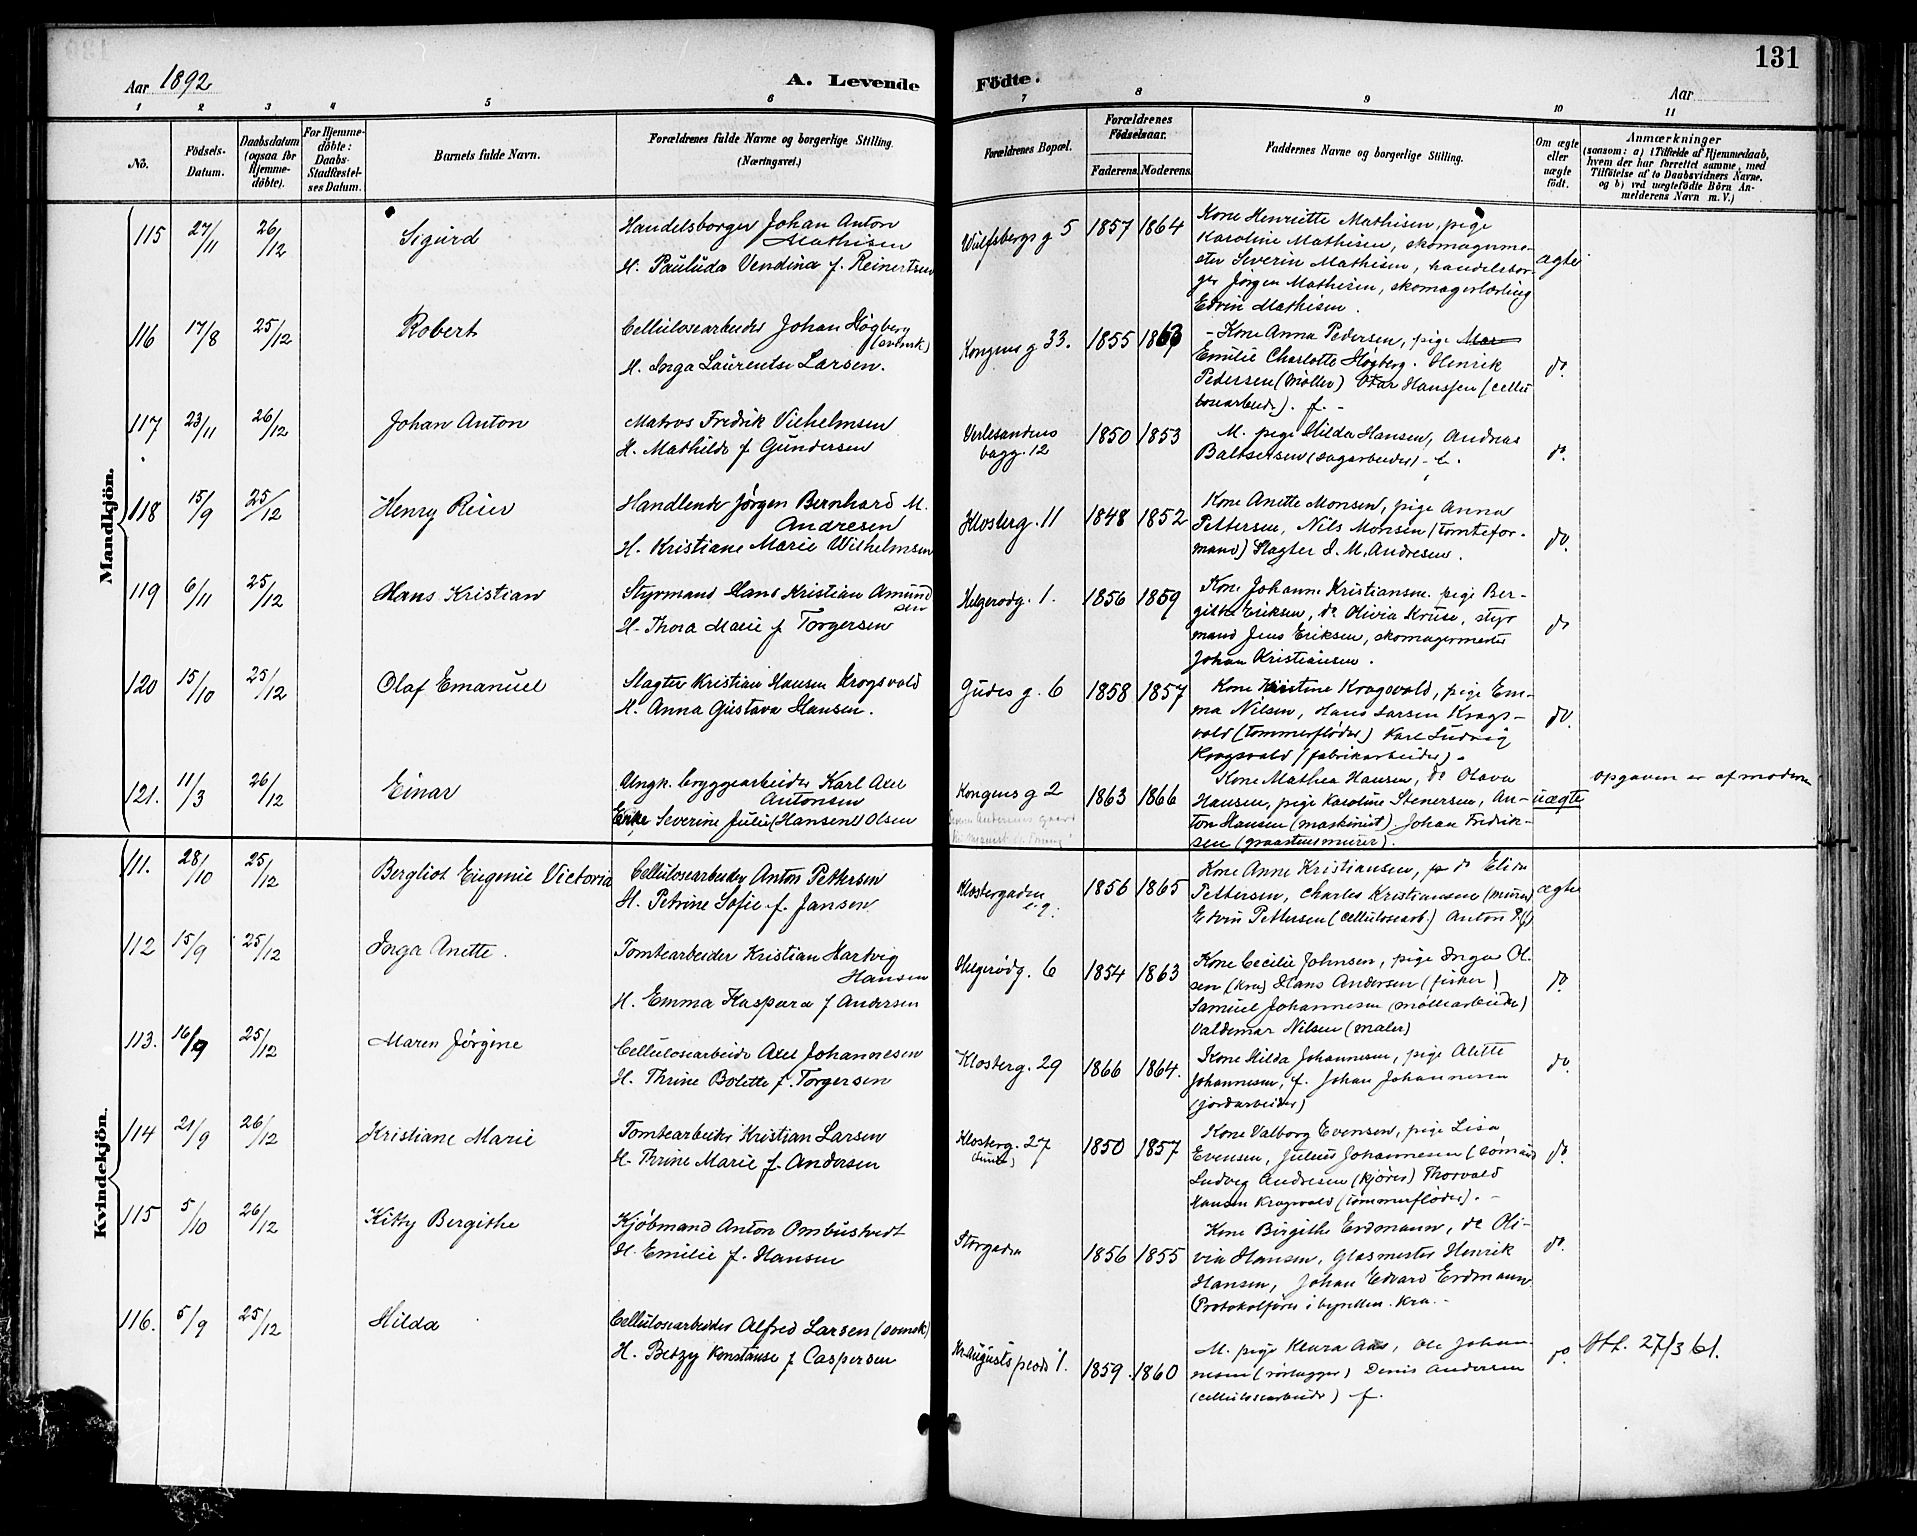 131
Aar 1892
A. Levende
Födte.
Aar
1 2 3 4 5 6 7 8 9 10 11
No.
Födsels-
Datum.
Daabsdatum
(ogsaa for
Hjemme-
döbte).
For Hjemme-
döbte:
Daabs-
Stadfæstel-
ses Datum.
Barnets fulde Navn.
Forældrenes fulde Navne og borgerlige Stilling.
(Næringsvei.)
Forældrenes Bopæl.
Forældrenes
Födselsaar.
Faderens.
Moderens.
Faddernes Navne og borgerlige Stilling.
Om ægte
eller
uægte
födt.
Anmærkninger
(saasom: a) i Tilfælde af Hjemmedaab,
hvem der har forrettet samme, med
Tilföielse af to Daabsvidners Navne,
og b) ved uægtefödte Börn An-
melderens Navn m. V.)
Mandkjön.
115 27/11 26/12 Sigurd
Handelsborger Johan Anton
Mathisen
H. Pauluda Vendina f. Reinertsen
Wulfsbergs g 5 1857 1864
Kone Henriette Mathisen, pige
Karoline Mathisen, skomagerme-
ster Severin Mathisen, handelsbor-
ger Jörgen Mathisen, skomagerlærling
Edvin Mathisen.
ægte
116 17/8 25/12 Robert
Cellulosearbeider Johan Høgberg
(svensk)
H. Inga Laurentse Larsen.
Kongens g 33. 1855 1863
- Kone Anna Pedersen, pige Mar
Emilie Charlotte Høgberg. Henrik
Pedersen (møller) Hanssen (cellu
losearbeider). f. -
do.
117 23/11 26/12 Johan Anton
Matros Fredrik Vilhelmsen
H. Mathilde f Gundersen
Verlesandens
bagg. 12 1850 1853
M. pige Hilda Hansen, Andreas
Baltsersen (sagarbeider) -
do.
118 15/9 25/12 Henry Reier
Handlende Jørgen Bernhard M.
Andresen
H. Kristiane Marie Wilhelmsen
Klosterg. 11 1848 1852
Kone Anette Monsen, pige Anna
Pettersen, Nils Monsen (tomtefor-
mand) Slagter J. M. Andresen.
do.
119 6/11 25/12 Hans Kristian
Styrmand Hans Kristian Amund
sen
H. Thora Marie f Torgersen
Helgerodg. 1. 1856 1859
Kone Johanne Kristiansen, pige Ber-
githe Eriksen, do Olivia Kruse, styr
mand Jens Eriksen, skomagermester
Johan Kristiansen.
do
120 15/10 25/12 Olaf Emanuel
Slagter Kristian Hansen Krogsvold
H. Anna Gustava Hansen.
Gudes g. 6 1858 1857
Kone Kristine Kragsvald, pige Em-
ma Nilsen, Hans Larsen Krags-
vold (tømmerfløder) Karl Ludvig
Kragsvald (fabrikarbeider).
do.
121. 11/3 26/12 Einar
Ungk. bryggearbeider Karl Axel
Antonsen
Enke Severine Julie (Hansen) Olsen
Kongens g 2 1863 1866
Kone Mathea Hansen, do Olava
Hansen, pige Karoline Stenersen, An-
ton Hansen (maskinist). Johan Fredrik-
sen (graastensmurer).
uægte
opgaven er af moderen
Kvindekjön.
111. 28/10 25/12 Bergliot Eugenie Victoria
Cellulosearbeider Anton Pettersen
H. Petrine Sofie f. Jansen
Klostergaden
1856 1865
Kone Anne Kristiansen, p do Elida
Pettersen, Charles Kristiansen (murer)
Edvin Pettersen (cellulosearb.) Anton P. (f)
ægte
112 15/9 25/12 Inga Anette.
Tomtearbeider Kristian Hartvig
Hansen
H. Emma Kaspara f Andersen
Helgerødg. 6 1854 1863
Kone Cecilie Johnsen, pige Inga Ol-
sen (kra) Hans Andersen (fisker)
Samuel Johannesen (møllearbeider)
Valdemar Nilsen (maler)
do.
113. 16/9 25/12 Maren Jørgine
Cellulosearbeider Axel Johannesen
H. Thrine Bolette f. Torgersen
Klosterg. 29 1866 1864.
Kone Hilda Johannesen, pige Alette
Johannesen, f. Johan Johannesen
(jordarbeider)
do.
114 21/9 26/12 Kristiane Marie
Tomtearbeider Kristian Larsen
H. Thrine Marie f. Andersen
Klosterg. 27
1850 1857
Kone Valborg Evensen, pige Lisa
Evensen, Julius Johannesen (sømand
Ludvig Andresen (kjører) Thorvald
Hansen Kragsvald (tømmerfløder). -
do.
115 5/10 26/12 Kitty Bergithe
Kjøbmand Anton Ombustvedt
H. Emilie f. Hansen
Storgaden 1856 1855
Kone Birgithe Erdmann, do Oli-
via Hansen, Glasmester Henrik
Hansen, Johan Edvard Erdmann
Protokolfører i byretten. Kra. -
do.
116. 5/9 25/12 Hilda
Cellulosearbeider Alfred Larsen (svensk)
H. Betzy Konstanse f Caspersen
1. 1859. 1860
M. pige Klara Aas, Ole Johan-
nesen (rørlægger) Denis Andersen
(cellulosearbeider) f.
do.
Att. 27/3 61.